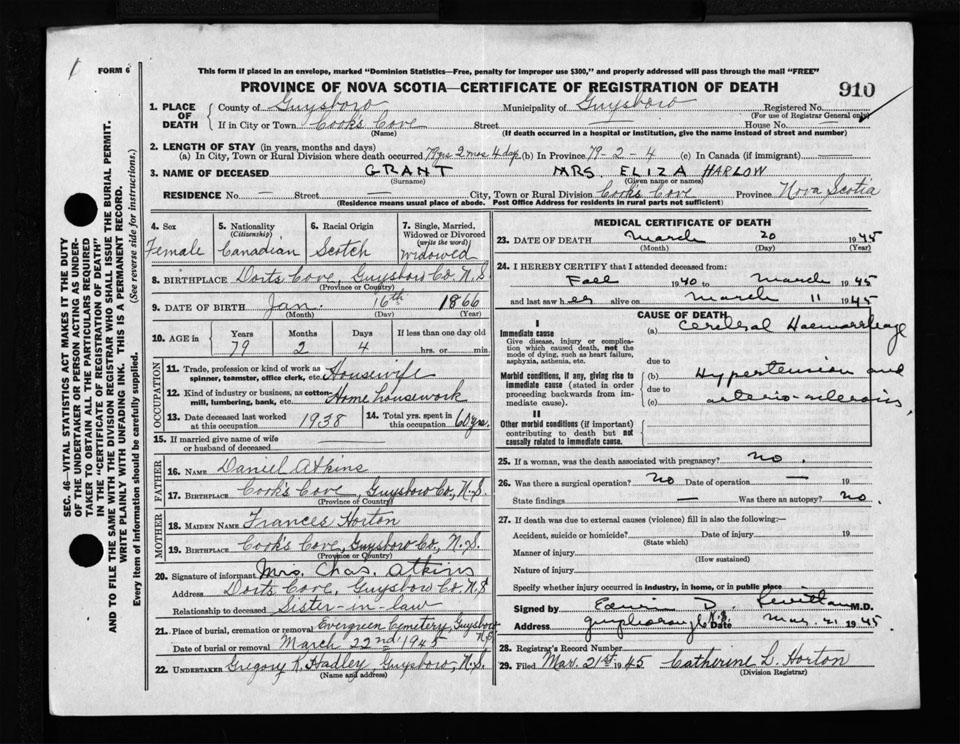 FORM 6
This form if placed in an envelope, marked "Dominion Statistics—Free, penalty for improper use $300," and properly addressed will pass through the mail "FREE"
PROVINCE OF NOVA SCOTIA—CERTIFICATE OF REGISTRATION OF DEATH
910
1. PLACE OF DEATH
County of Guysboro Municipality of Guysboro Registered No.
(For use of Registrar General only)
If in City or Town Cook's Cove Street — House No. —
(Name) (If death occurred in a hospital or institution, give the name instead of street and number)
2. LENGTH OF STAY (in years, months and days)
(a) In City, Town or Rural Division where death occurred 79 yrs 2 mos 4 dys (b) In Province 79-2-4 (c) In Canada (if immigrant) —
3. NAME OF DECEASED GRANT MRS. ELIZA HARLOW
(Surname) (Given name or names)
RESIDENCE No. — Street City, Town or Rural Division Cook's Cove Province Nova Scotia
(Residence means usual place of abode. Post Office Address for residents in rural parts not sufficient)
4. Sex
Female
5. Nationality (Citizenship)
Canadian
6. Racial Origin
Scotch
7. Single, Married, Widowed or Divorced (write the word)
Widowed
8. BIRTHPLACE Dorts Cove, Guysboro Co. N.S
(Province or Country)
9. DATE OF BIRTH Jan. 16th 1866
(Month) (Day) (Year)
10. AGE in
Years Months Days If less than one day old
79 2 4 hrs. or min.
OCCUPATION
11. Trade, profession or kind of work as spinner, teamster, office clerk, etc. Housewife
12. Kind of industry or business, as cotton-mill, lumbering, bank, etc. Home housework
13. Date deceased last worked at this occupation 1938
14. Total yrs. spent in this occupation 60 yrs.
15. If married give name of wife or husband of deceased —
FATHER
16. NAME Daniel Atkins
17. BIRTHPLACE Cook's Cove, Guysboro Co., N.S.
(Province or Country)
MOTHER
18. MAIDEN NAME Frances Horton
19. BIRTHPLACE Cook's Cove, Guysboro Co., N.S.
(Province or Country)
20. Signature of informant Mrs. Chas. Atkins
Address Dorts Cove, Guysboro Co. N.S
Relationship to deceased Sister-in-law
21. Place of burial, cremation or removal Evergreen Cemetery, Guysboro N.S
Date of burial or removal March 22nd 1945
22. UNDERTAKER Gregory R. Hadley, Guysboro, N.S.
(Name and address)
MEDICAL CERTIFICATE OF DEATH
23. DATE OF DEATH March 20 1945
(Month) (Day) (Year)
24. I HEREBY CERTIFY that I attended deceased from:
Fall 1940 to March 1945
and last saw her alive on March 11 1945
CAUSE OF DEATH
I
Immediate cause
Give disease, injury or complication which caused death, not the mode of dying, such as heart failure, asphyxia, asthenia, etc.
(a) Cerebral Haemorrhage
due to
Morbid conditions, if any, giving rise to immediate cause (stated in order proceeding backwards from immediate cause).
(b) Hypertension and
due to
(c) arterio-sclerosis,
II
Other morbid conditions (if important) contributing to death but not causally related to immediate cause.
25. If a woman, was the death associated with pregnancy? no.
26. Was there a surgical operation? No Date of operation — 19
State findings — Was there an autopsy? no.
27. If death was due to external causes (violence) fill in also the following:—
Accident, suicide or homicide? Date of injury 19
(State which)
Manner of injury
(How sustained)
Nature of injury
Specify whether injury occurred in industry, in home, or in public place
Signed by M.D.
Address N.S. Date Mar. 21 1945.
28. Registrar's Record Number
29. Filed Mar. 21st 1945 Catherine L. Horton
(Division Registrar)
SEC. 46—VITAL STATISTICS ACT MAKES IT THE DUTY
OF THE UNDERTAKER OR PERSON ACTING AS UNDER-
TAKER TO OBTAIN ALL THE PARTICULARS REQUIRED
IN THE "CERTIFICATE OF REGISTRATION OF DEATH"
AND TO FILE THE SAME WITH THE DIVISION REGISTRAR WHO SHALL ISSUE THE BURIAL PERMIT.
WRITE PLAINLY WITH UNFADING INK. THIS IS A PERMANENT RECORD.
Every item of information should be carefully supplied. (See reverse side for instructions.)